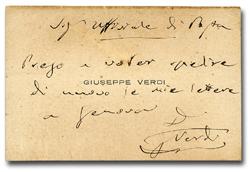 Sigr Uffiziale di Posta
Prego a voler spedire
GIUSEPPE VERDI
di nuovo le mie lettere
a Genova
G. Verdi